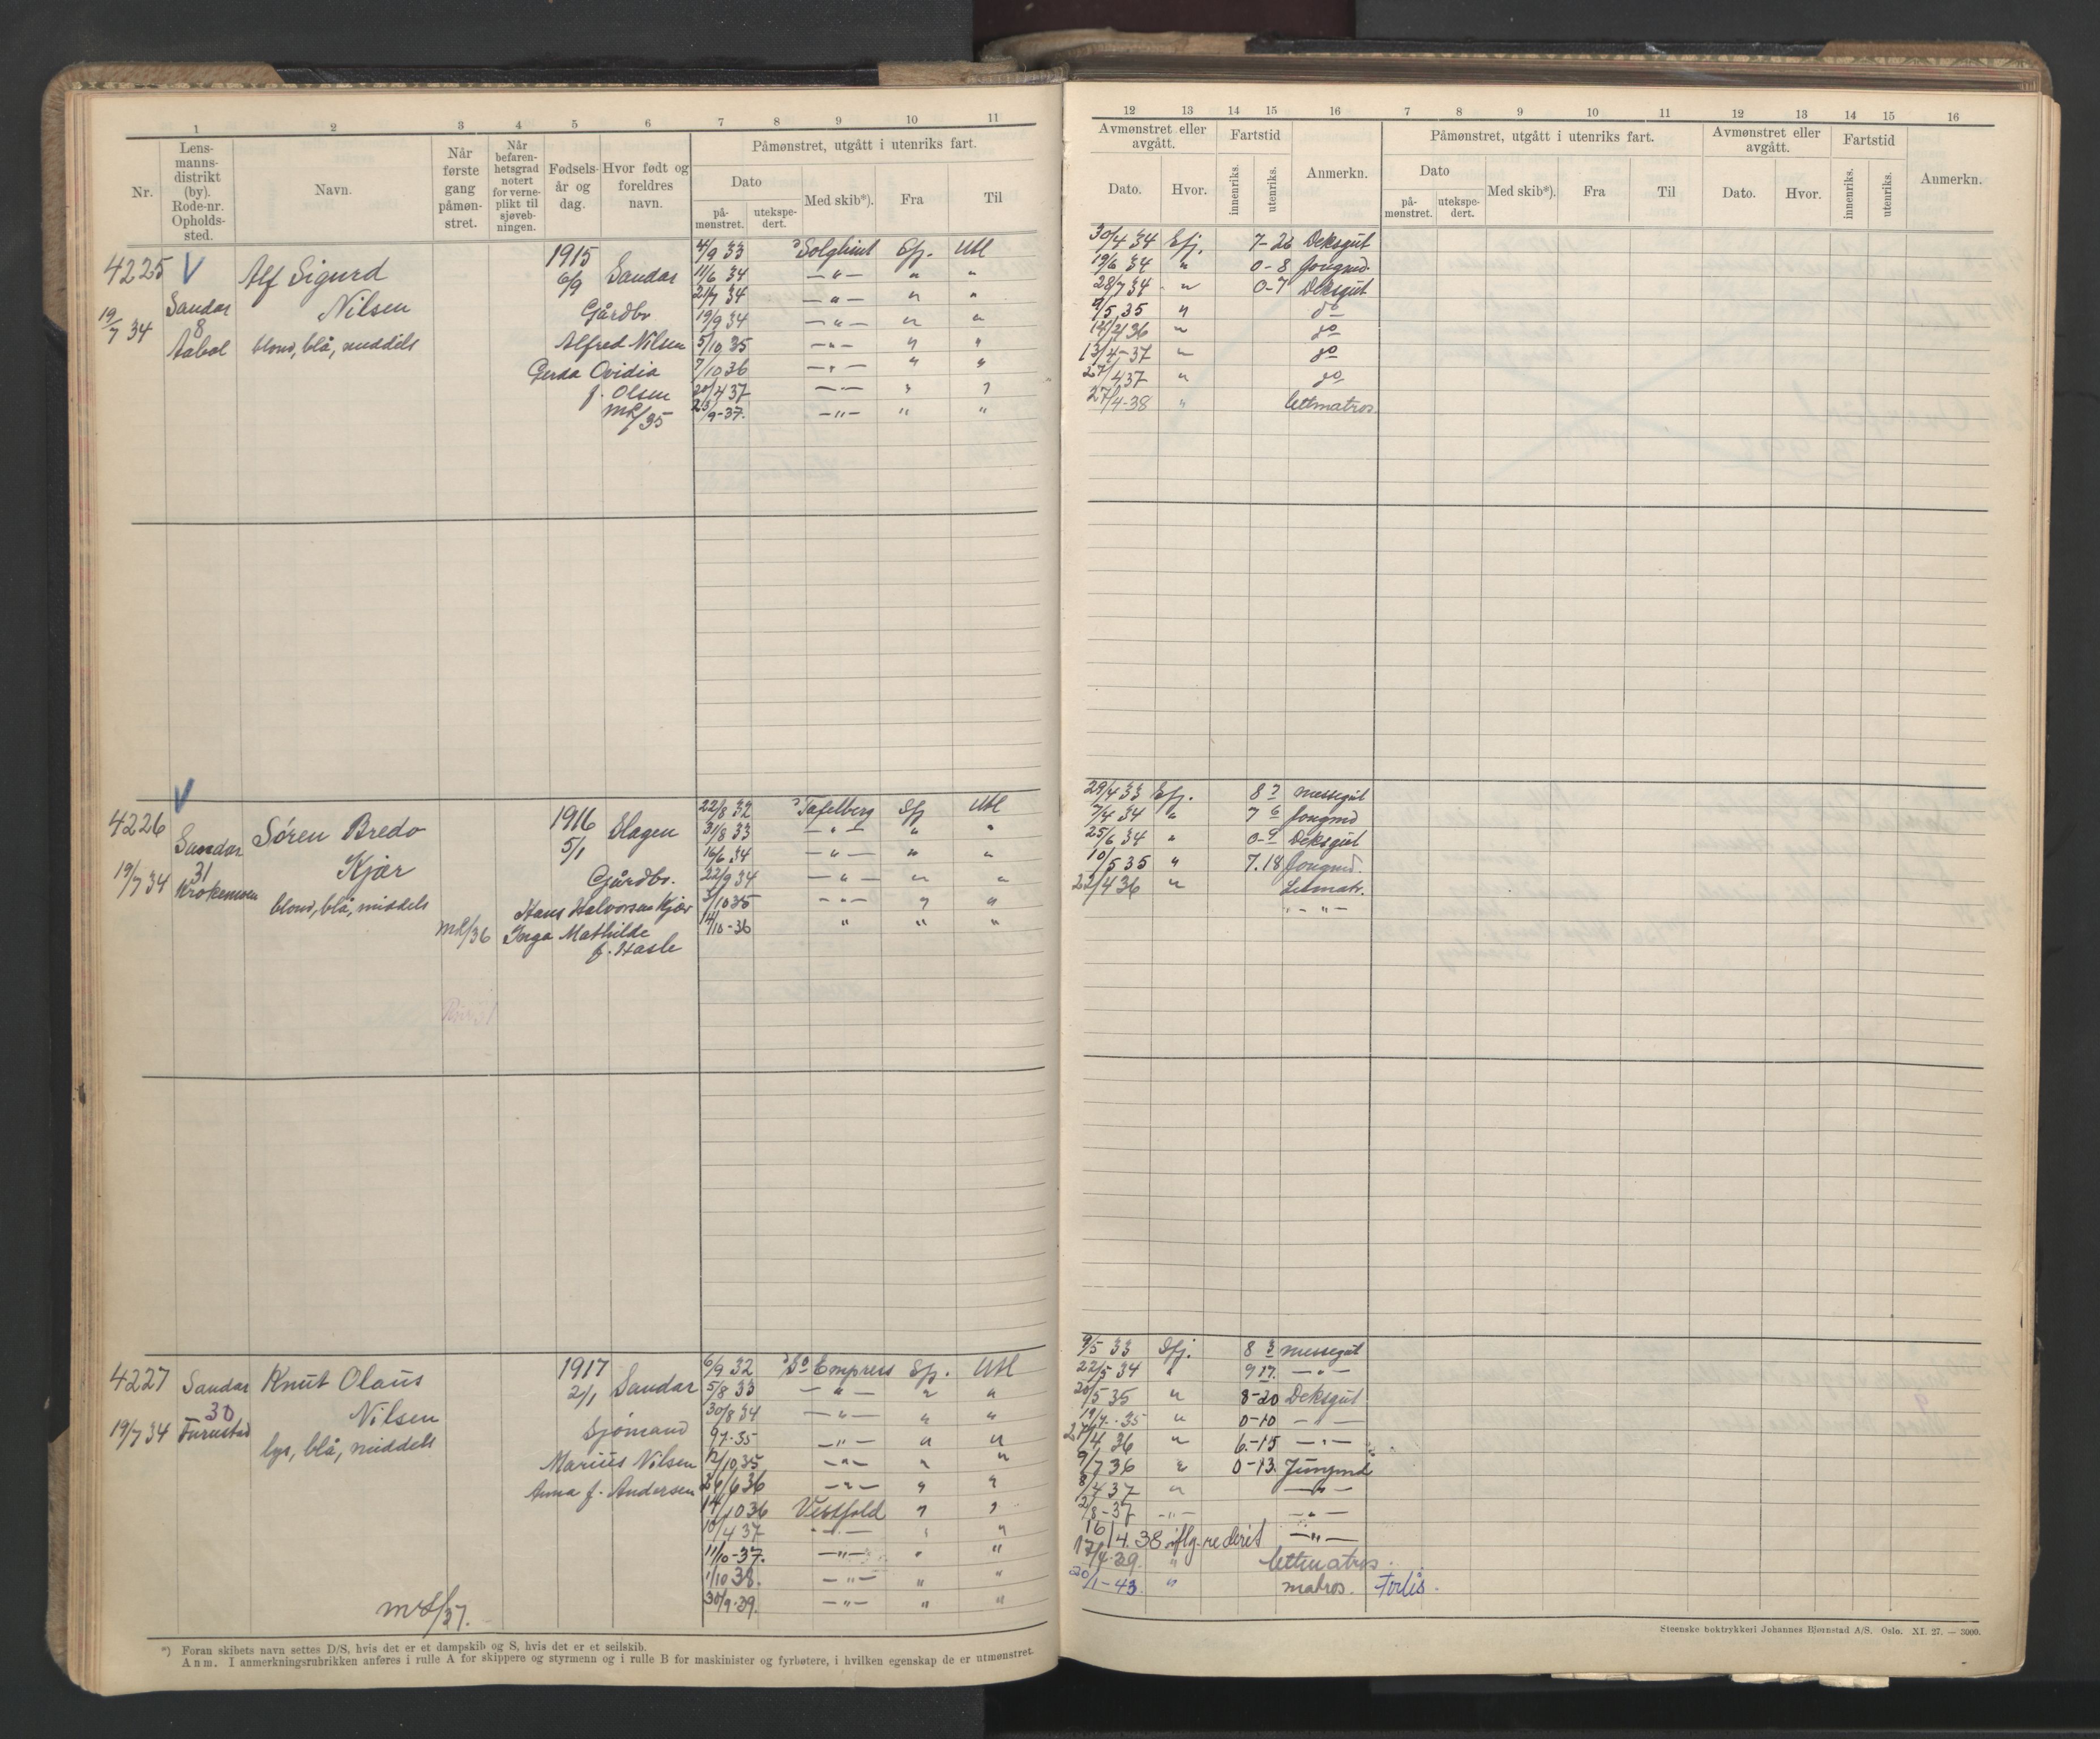 1 2 3 4 5 6 7 8 9 10 11
Nr.
Lens-
manns-
distrikt
(by).
Rode-nr.
Opholds-
sted.
Navn.
Når
første
gang
påmøn-
stret.
Når
befaren-
hetsgrad
notert
for verne-
plikt til
sjøveb-
ningen.
Fødsels-
år og
dag.
Hvor født og
foreldres
navn.
Påmønstret, utgått i utenriks fart.
Dato
på-
mønstret.
utekspe-
dert.
Med skib*).
Fra
Til
4225 V Alf Sigurd 1915 Sandar 4/9 33 Solglimt Sfj. Utl
6/9 11/6 34 — " — " "
Sandar Nilsen Gårdbr. 21/7 34 — " — " "
19/7 34 8 19/9 34 — " — " "
Aabol blond, blå, middels Alfred Nilsen 5/10 35 — " — " "
Gerda Ovidia 7/10 36 — " — " "
f. Olsen 20/4 37 — " — " "
mR/35 23/9-37. — " — " "
V
4226 Søren Bredo 1916 Slagen 22/8 32 Tafelberg Sfj Utl
Sandar 5/1 31/8 33 — " — " "
31 Kjær 16/6 34 — " — " "
19/7 34 Krokemoen Gårdbr. 22/9 34 — " — " "
blond, blå, middels Hans Halvorsen Kjær 3/10 35 — " — " "
mR/36 Inga Mathilde 14/10-36 " " "
f. Hasle
4227 Sandar Knut Olaus 1917 Sandar 6/9 32 So Empress Sfj. Utl
30 2/1 5/8 33 — " — " "
Nilsen 30/8 34 — " — " "
19/7 34 Furustad Sjømand 9/7-35 — " — " "
lys, blå, middels Marius Nilsen 12/10 35 — " — " "
Anna f. Andersen 24/6 36 — " — " "
14/10 36 Vestfold " "
10/4 37 — " — " "
11/10-37. — " — " "
1/10 38. — " — " "
mR/37. 30/9-39. — " — " "
*) Foran skibets navn settes D/S, hvis det er et dampskib og S, hvis det er et seilskib.
Anm. I anmerkningsrubrikken anføres i rulle A for skippere og styrmenn og i rulle B for maskinister og fyrbøtere, i hvilken egenskap de er utmønstret.
12 13 14 15 16 7 8 9 10 11 12 13 14 15 16
Avmønstret eller
avgått.
Dato.
Hvor.
Fartstid
innenriks.
utenriks.
Anmerkn.
Påmønstret, utgått i utenriks fart.
Dato
på-
mønstret.
utekspe-
dert.
Med skib*).
Fra
Til
Avmønstret eller
avgått.
Dato.
Hvor.
Fartstid
innenriks.
utenriks.
Anmerkn.
30/4 34 Sfj. 7-26 Deksgut
19/6 34 " 0-8 Jongmd.
28/7 34 " 0-7 Deksgut
9/5 35 " do
14/4 36 " do
13/4-37 " do
27/4 37 " do
27/4-38 " lettmatros
29/4 33 Sfj. 8 7 messegut
7/4 34 " 7 6 Jongmd
25/6 34 " 0-9 Deksgut
10/5 35 " 7.18 Jongmd.
22/4 36 " Letmatr.
" — " —
9/5 33 Sfj. 8 3 messegut
22/5 34 " 9 17. — " —
20/5 35 " 8-20 Deksgut
19/7.-35 " 0-10 — " —
27/4 36 " 6.-15 — " —
9/7 36 " 0-13. Jungmd
8/4 37 " — " —
2/8-37 — " — — " —
16/4.38 iflg. rederit — " —
17/4.39. " lettmatros.
20/1-43. " matros. Forlis.
Steenske boktrykkeri Johannes Bjørnstad A/S. Oslo. XI. 27. — 3000.